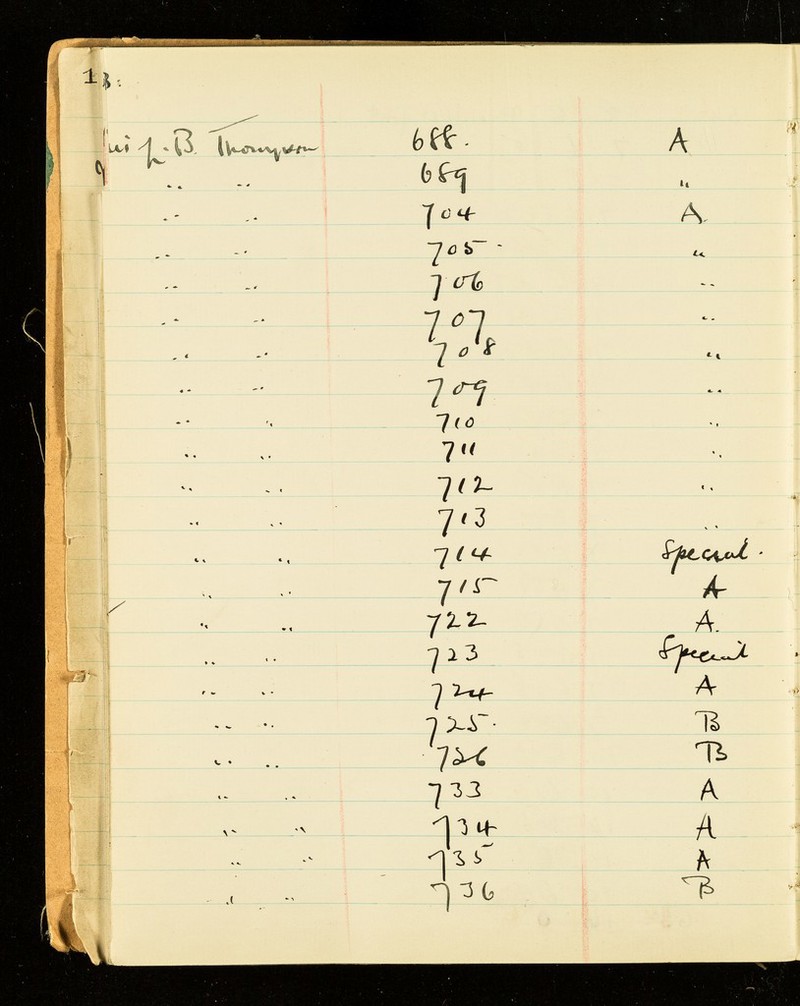 13:
L. B. Thompson 688. A
" " 689 "
" " 704 A.
" " 705 . "
" " 706 "
" " 707 "
" " 708 "
" " 709 "
" " 710 "
" " 711 "
" " 712 "
" " 713 "
" " 714 Special .
" " 715 A
" " 722 A.
" " 723 Special
" " 724 A
" " 725. B
" " 726 B
" " 733 A
" " 734 A
" " 735 A
" " 736 B